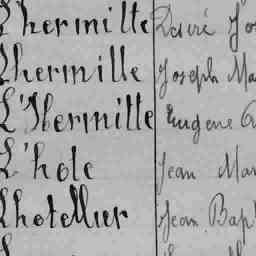 Lhermitte Désiré Jo
Lhermille Joseph Ma
L'Hermitte Eugène
L'hole Jean Mar
Lhotellier Jean Bap